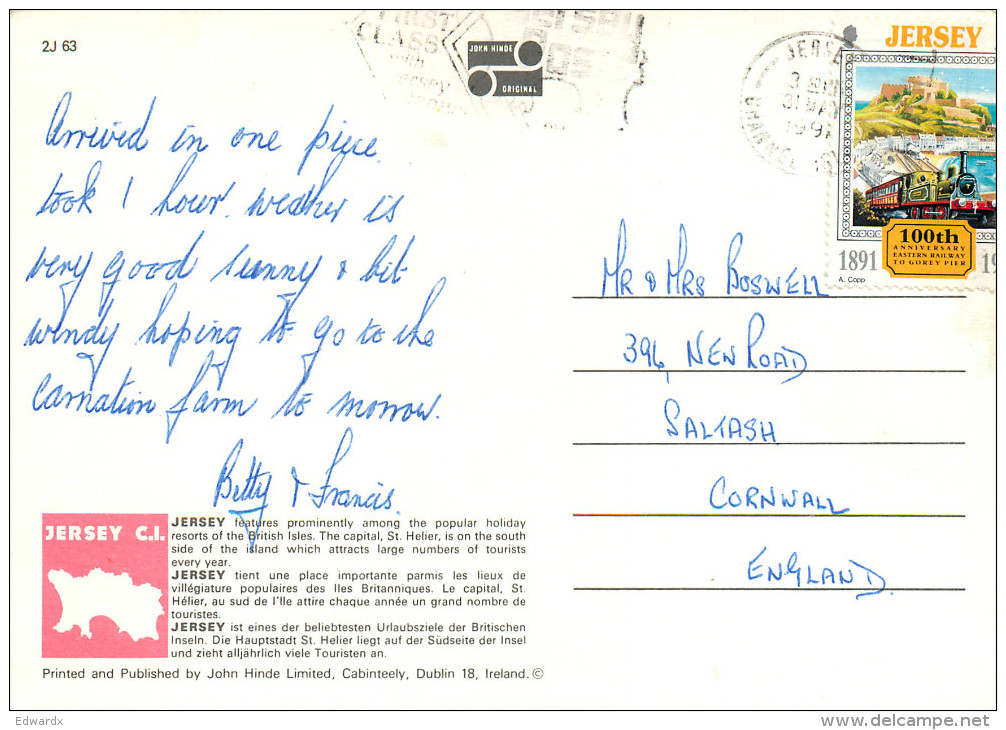 2J 63
FIRST
CLASS
with
JOHN HINDE
ORIGINAL
JERSEY
3 30 PM
31 MAY
1991
CHANNEL
JERSEY
100th
ANNIVERSARY
EASTERN RAILWAY
TO GOREY PIER
1891
A. Copp
Arrived in one piece.
took 1 hour. weather is
very good sunny & bit
windy hoping to go to the
Carnation farm to morrow.
Betty & Francis.
MR & MRS BOSWELL
396, NEW ROAD
SALTASH
CORNWALL
ENGLAND.
JERSEY C.I.
JERSEY features prominently among the popular holiday
resorts of the British Isles. The capital, St. Helier, is on the south
side of the island which attracts large numbers of tourists
every year.
JERSEY tient une place importante parmis les lieux de
villégiature populaires des Iles Britanniques. Le capital, St.
Hélier, au sud de l'Ile attire chaque année un grand nombre de
touristes.
JERSEY ist eines der beliebtesten Urlaubsziele der Britischen
Inseln. Die Hauptstadt St. Helier liegt auf der Südseite der Insel
und zieht alljährlich viele Touristen an.
Printed and Published by John Hinde Limited, Cabinteely, Dublin 18, Ireland. ©
Edwardx
delcampe.net